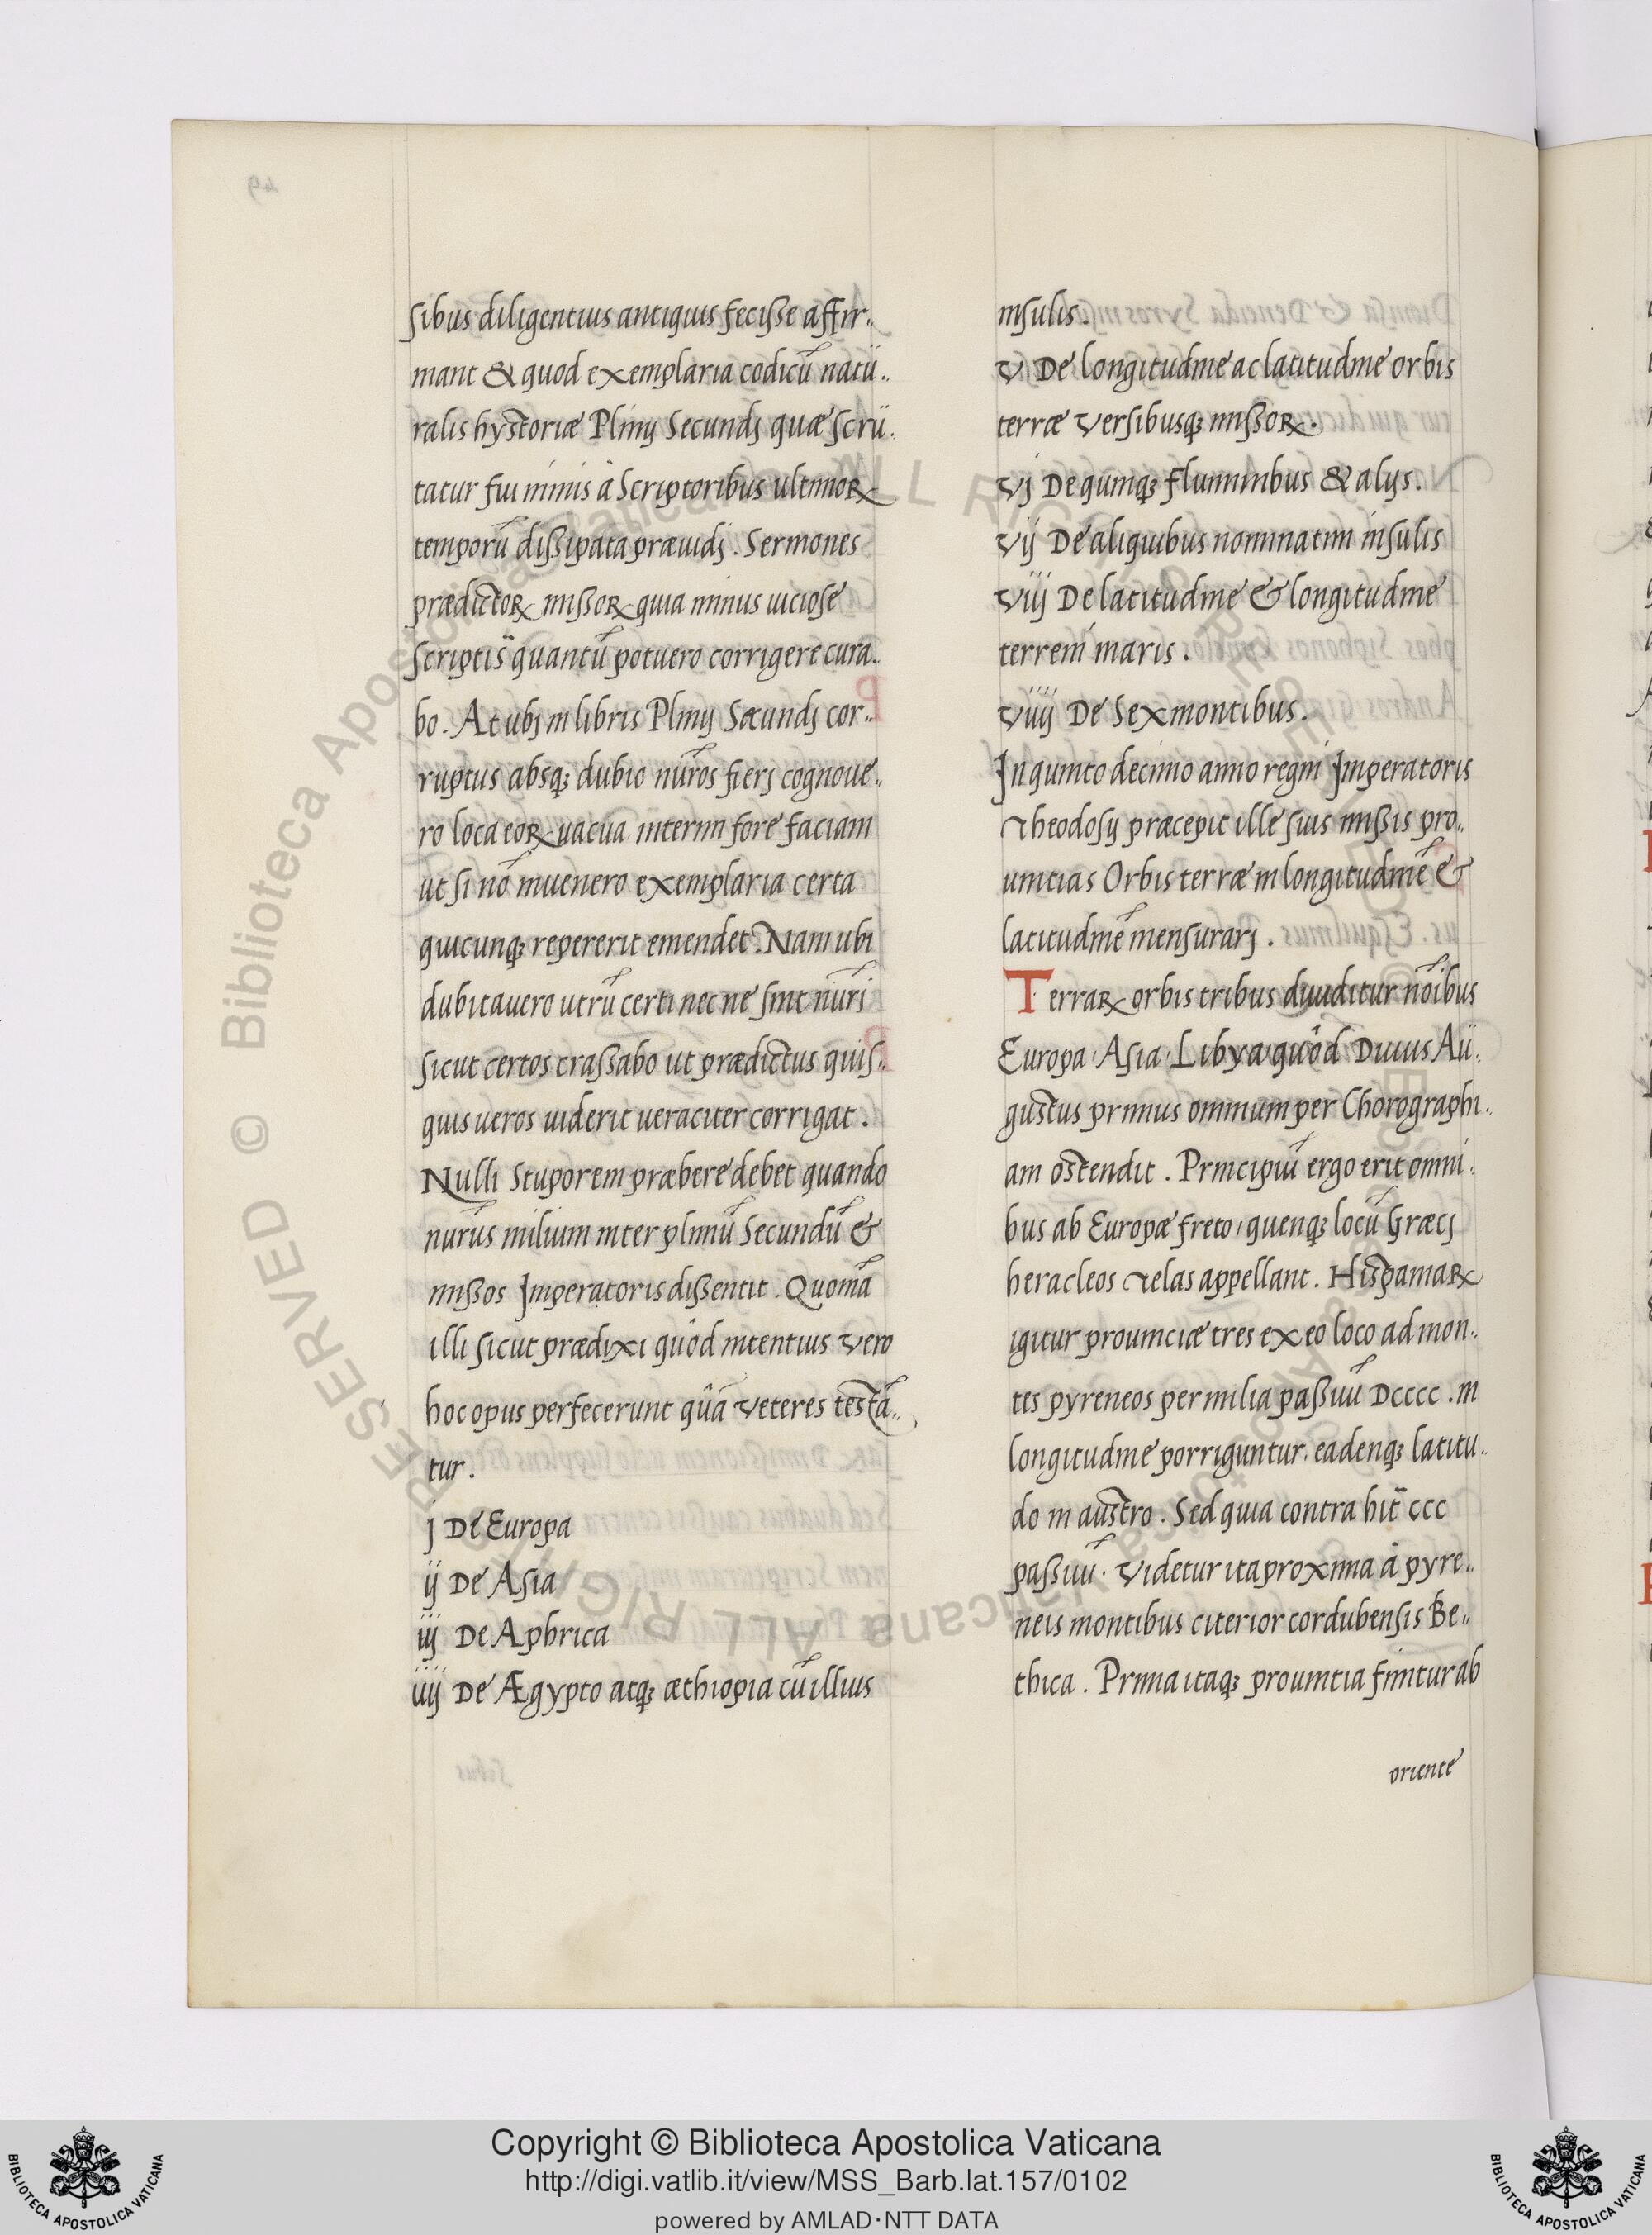 sibus diligentius antiquis fecisse affir..
mant & quod exemplaria codicū natu..
ralis hystoriæ Plinij Secundj quæ scru..
tatur fui nimis à Scriptoribus ultimoꝝ
temporū dissipata præuidj. Sermones
prædictoꝝ missoꝝ quia nimis uiciose
scriptis quantū potuero corrigere cura..
bo. At ubj in libris Plinij Secundj cor..
ruptus absq; dubio nūros fierj cognoue..
ro loca eoꝝ uacua interim fore faciam
ut si nō inuenero exemplaria certa
quicunq; repererit emendet. Nam ubi
dubitauero utrū certi nec ne sint nūri
sicut certos crassabo ut prædictus quis..
quis ueros uiderit ueraciter corrigat.
Nulli Stuporem præbere debet quando
nūrus milium inter pliniū Secundū &
missos Imperatoris dissentit. Quoniā
illi sicut prædixi quòd intentius vero
hoc opus perfecerunt quā veteres testā..
tur.
j De Europa
ij De Asia
iij De Aphrica
iiij De Ægypto atq; æthiopia cū illius
insulis.
v De longitudine ac latitudine orbis
terræ versibusq; missoꝝ.
vj De quinq; fluminibus & alijs.
vij De aliquibus nominatim insulis
viij De latitudine & longitudine
terreni maris.
viiij De Sex montibus.
In quinto decimo anno regni Imperatoris
Theodosij præcepit ille suis missis pro..
uintias Orbis terræ in longitudinē &
latitudinē mensurarj.
Terraꝝ orbis tribus diuiditur nōibus
Europa, Asia, Libya quôd Diuus Au..
gustus primus omnium per Chorographi..
am ostendit. Principiū ergo erit omni..
bus ab Europæ freto, quenq; locū Græcj
heracleos Telas appellant. Hispaniaꝝ
igitur prouinciæ tres ex eo loco ad mon..
tes pyreneos per milia passuū Dcccc. in
longitudine porriguntur, eadenq; latitu..
do in austro. Sed quia contrahit ccc
passuū. Videtur ita proxima à pyre..
neis montibus citerior cordubensis Be..
thica. Prima itaq; prouintia finitur ab
oriente
Copyright © Biblioteca Apostolica Vaticana
http://digi.vatlib.it/view/MSS_Barb.lat.157/0102
powered by AMLAD·NTT DATA